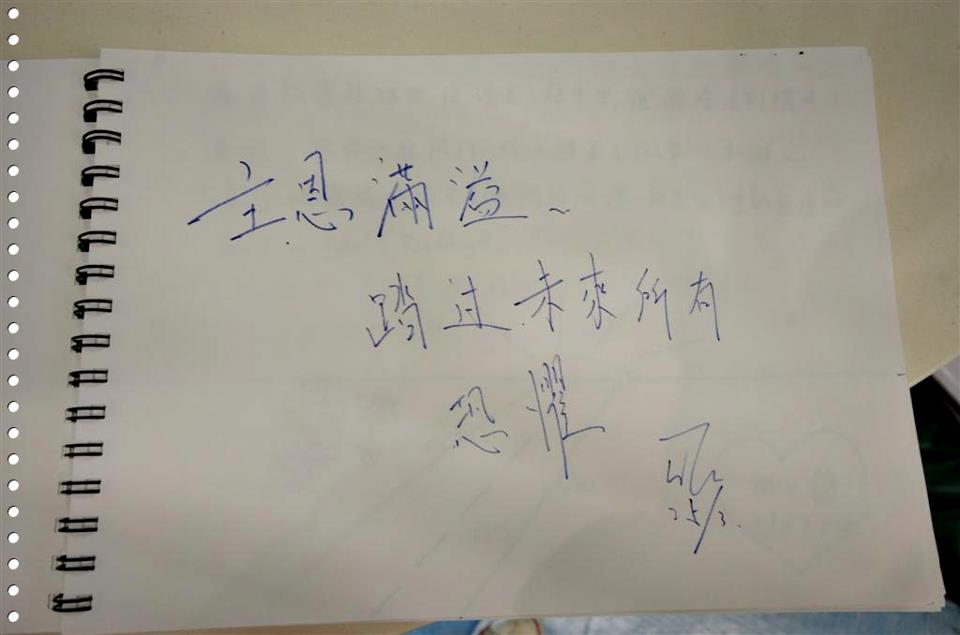 主恩滿溢、~
踏过未來所有
恐懼
25/3.